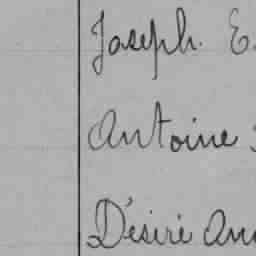 Joseph. E.
Antoine
Désiré